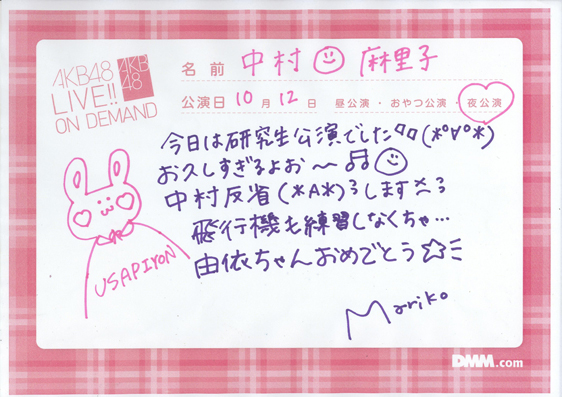 AKB48
LIVE!!
ON DEMAND
AKB
48
名前 中村 麻里子
公演日 10月12日 昼公演・おやつ公演・夜公演
今日は研究生公演でした(*°∀°*)
お久しすぎるよお〜♫
中村反省(*A*)ろします
飛行機も練習しなくちゃ...
由依ちゃんおめでとう☆
USAPIYON
Mariko
DMM.com